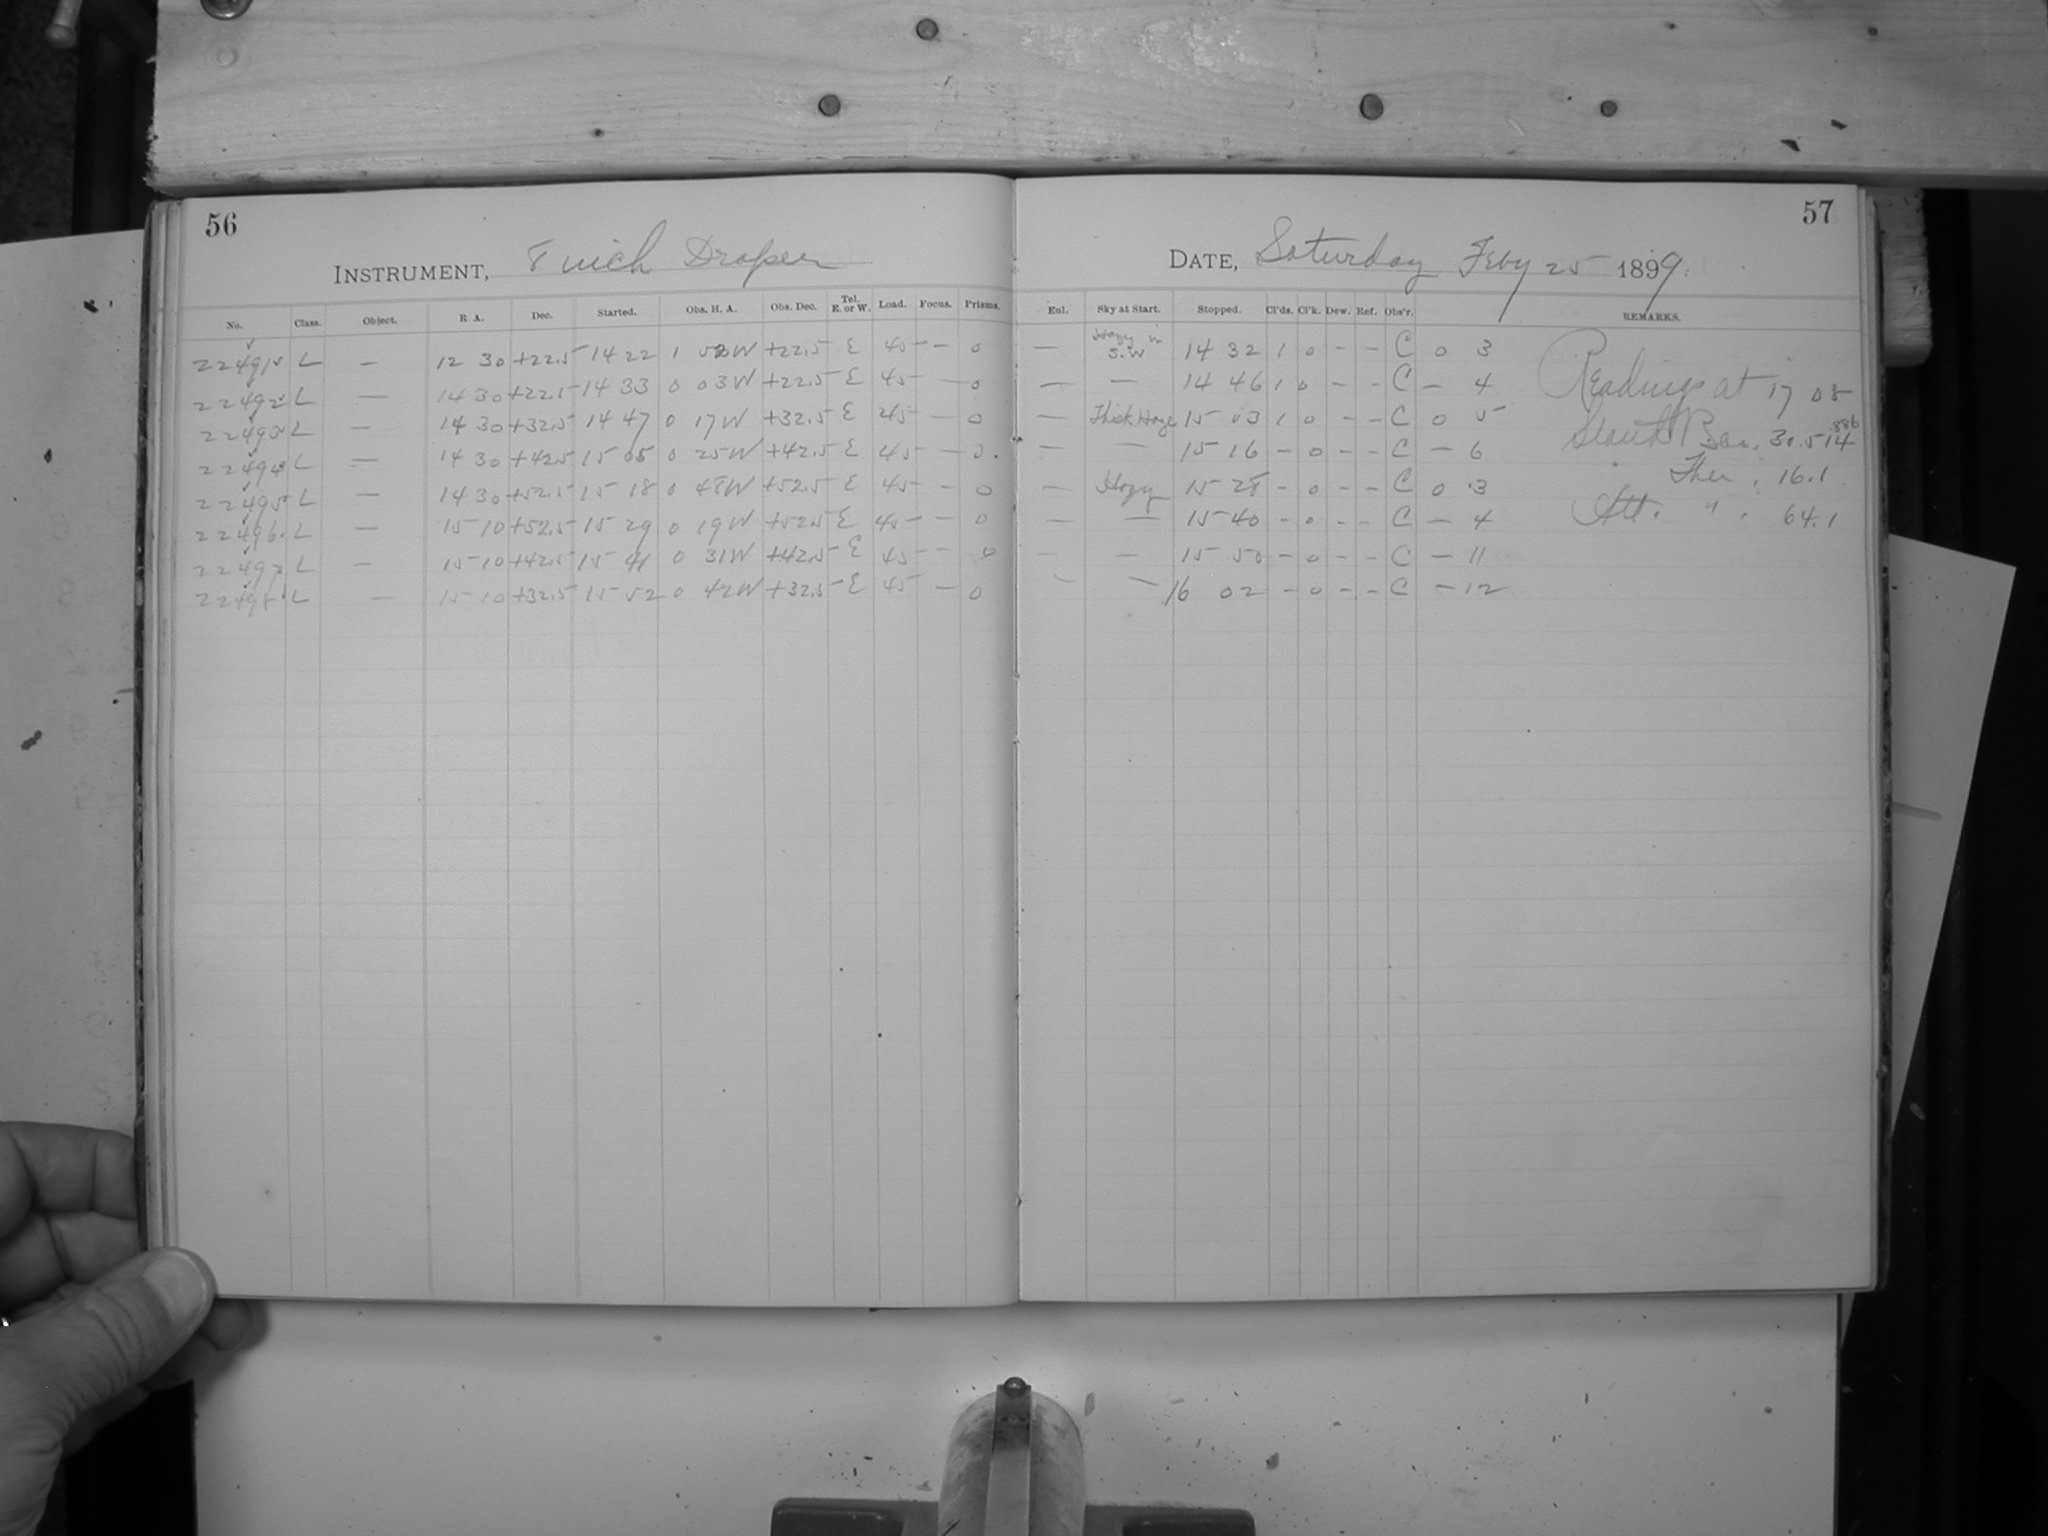 56
INSTRUMENT, 8 inch Draper
No. Class. Object. R. A. Dec. Started. Obs. H. A. Obs. Dec. Tel. E. or W. Load. Focus. Prisms.
22491 L — 12 30 +22.5 14 22 1 52W +22.5 E 45 — 0
22492 L — 14 30 +22.5 14 33 0 03W +22.5 E 45 — 0
22493 L — 14 30 +32.5 14 47 0 17W +32.5 E 45 — 0
22494 L — 14 30 +42.5 15 05 0 25W +42.5 E 45 — 0
22495 L — 14 30 +52.5 15 18 0 48W +52.5 E 45 — 0
22496 L — 15 10 +52.5 15 29 0 19W +52.5 E 45 — 0
22497 L — 15 10 +42.5 15 41 0 31W +42.5 E 45 — 0
22498 L — 15 10 +32.5 15 52 0 42W +32.5 E 45 — 0
57
DATE, Saturday Feby 25 1899.
Enl. Sky at Start. Stopped. Cl'ds. Cl'k. Dew. Ref. Obs'r. REMARKS.
— Hazy in S.W 14 32 1 0 - - C 0 3
— — 14 46 1 0 - - C — 4
— Thick Haze 15 03 1 0 - - C 0 5
— — 15 16 - 0 - - C — 6
— Hazy 15 28 - 0 - - C 0 3
— — 15 40 - 0 - - C — 4
— — 15 50 - 0 - - C — 11
— — 16 02 - 0 - - C — 12
Readings at 17 08
Stand Bar. 30.514 .886
Ther. 16.1
Att. " . 64.1